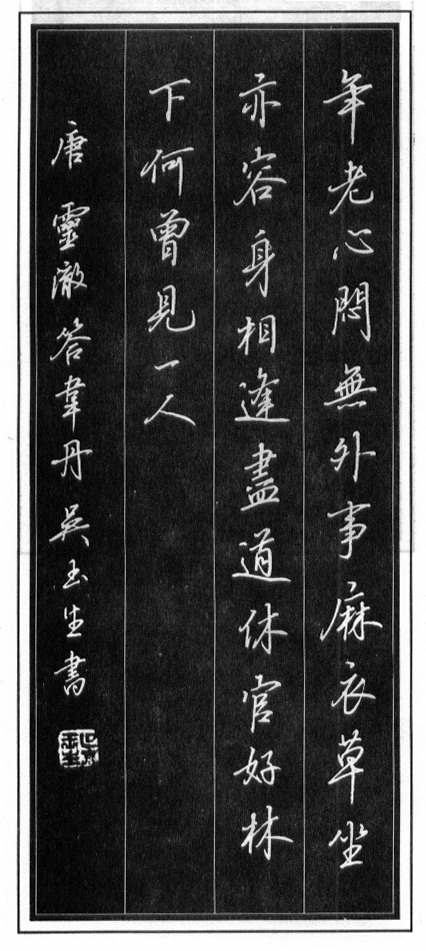 年老心悶無外事麻衣草坐
亦容身相逢盡道休官好林
下何曾見一人
唐 靈澈答韋丹吳玉生書